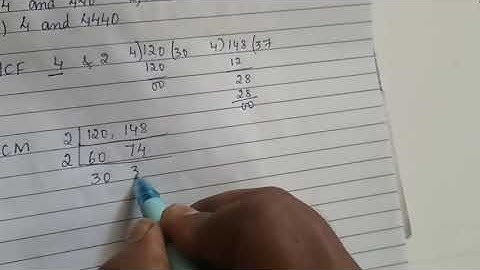 4 and 440
) 4 and 4440
HCF 4 & 2 4)120(30 4)148(37
120 12
00 28
28
00
CM 2 120, 148
2 60 74
30 3